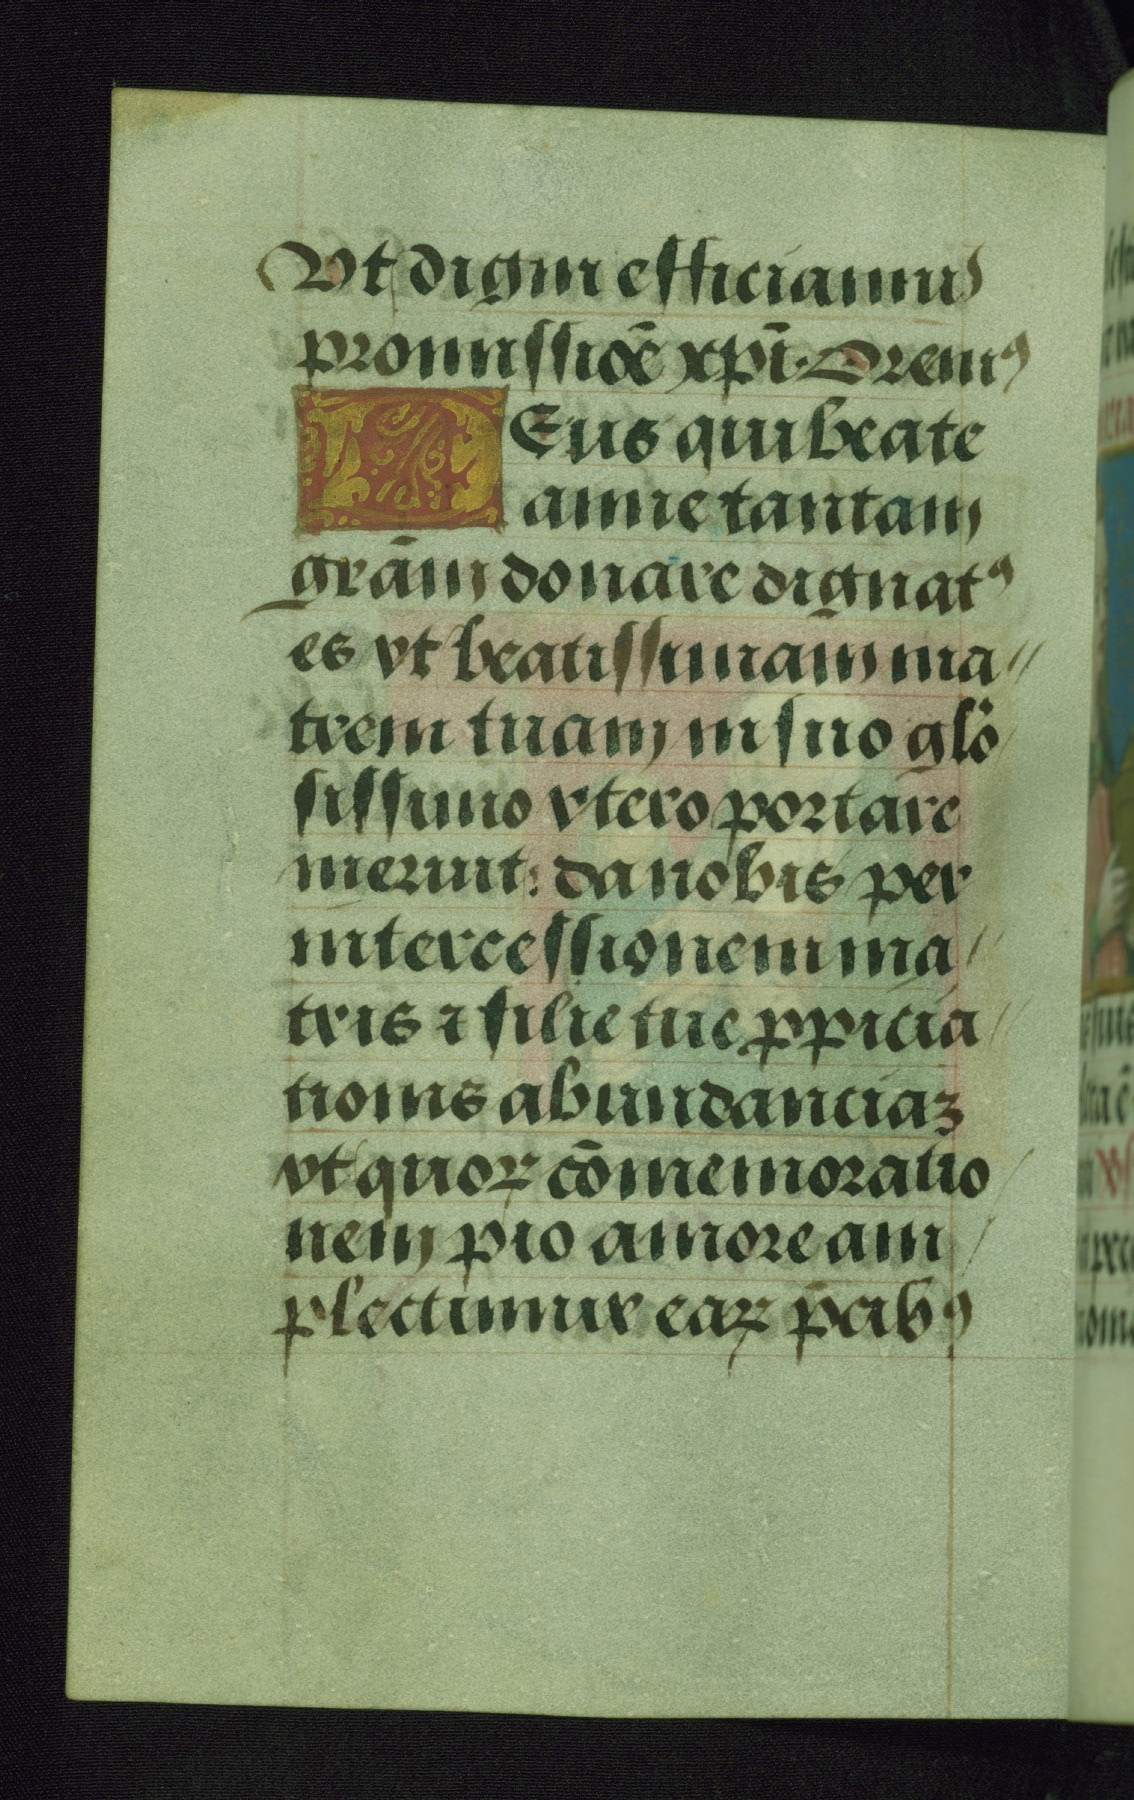 Vt digni efficiamur
promissiōe xp̄i. Oremꝰ
DEus qui beate
anne tantam
grām donare dignatꝰ
es vt beatissimam̄ ma
trem tuam in suo glo
sissimo vtero portare
meruit: da nobis per
intercessionem ma
tris ⁊ filie tue ꝓpicia
tionis abundanciaꝫ
vt quoꝝ cōmemoratio
nem pio amore am
plectimur eaꝝ p̄cibꝰ